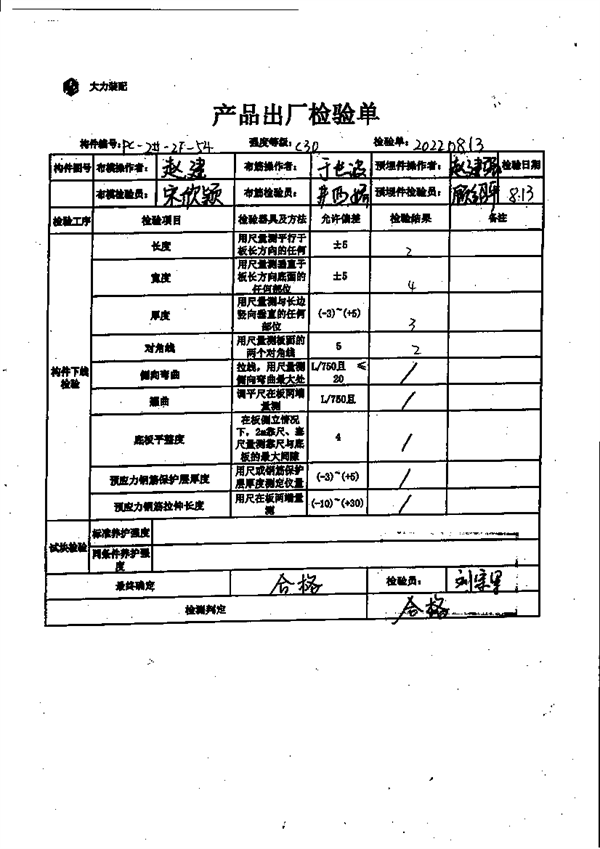 大力装配
产品出厂检验单
构件编号: PC-2#-2F-54 强度等级: C30 检验单: 20220813
构件图号 布模操作者: 赵建 布筋操作者: 预埋件操作者: 赵建强 检验日期
布模检验员: 宋欣颖 布筋检验员: 预埋件检验员: 8.13
检验工序 检验项目 检验器具及方法 允许偏差 检验结果 备注
构件下线检验
长度 用尺量测平行于板长方向的任何 ±5 2
宽度 用尺量测垂直于板长方向底面的任何部位 ±5 4
厚度 用尺量测与长边竖向垂直的任何部位 (-3)~(+5) 3
对角线 用尺量测板面的两个对角线 5 2
侧向弯曲 拉线,用尺量测侧向弯曲最大处 L/750且 ≤20 /
翘曲 调平尺在板两端量测 L/750且 /
底板平整度 在板侧立情况下,2m靠尺、塞尺量测靠尺与底板的最大间隙 4 /
预应力钢筋保护层厚度 用尺或钢筋保护层厚度测定仪量 (-3)~(+5) /
预应力钢筋拉伸长度 用尺在板两端量测 (-10)~(+30) /
试块检验 标准养护强度
同条件养护强度
最终确定 合格 检验员:
检测判定 合格